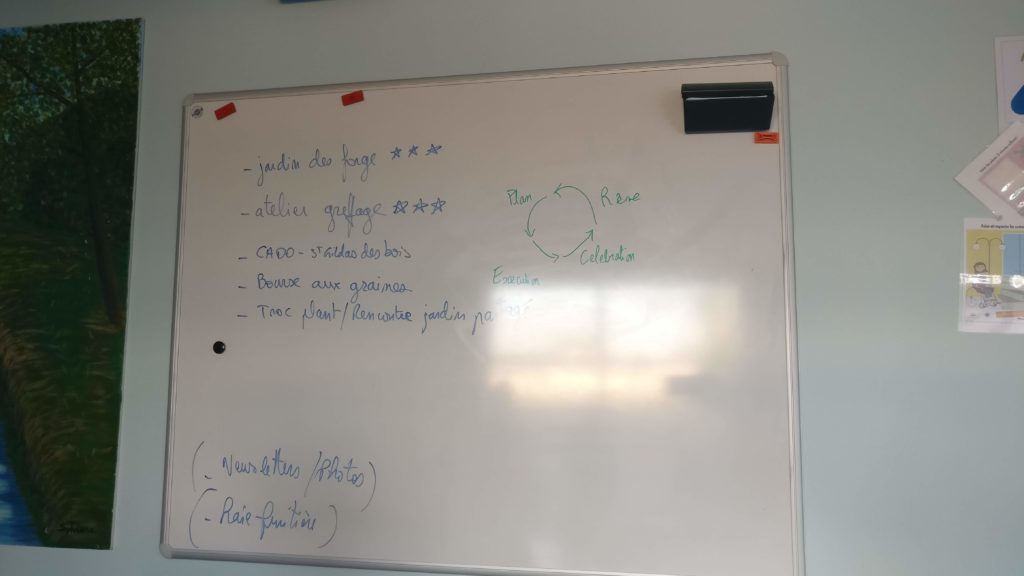 - jardin des forge ☆☆☆
- atelier greffage ☆☆☆
- CADO - St Gildas des bois
- Bourse aux graines
- Troc plant/Rencontre jardin partagé
Plan
Rêve
Celebration
Execution
(- Newsletters/Photos)
(- Haie fruitière)
Sylviane